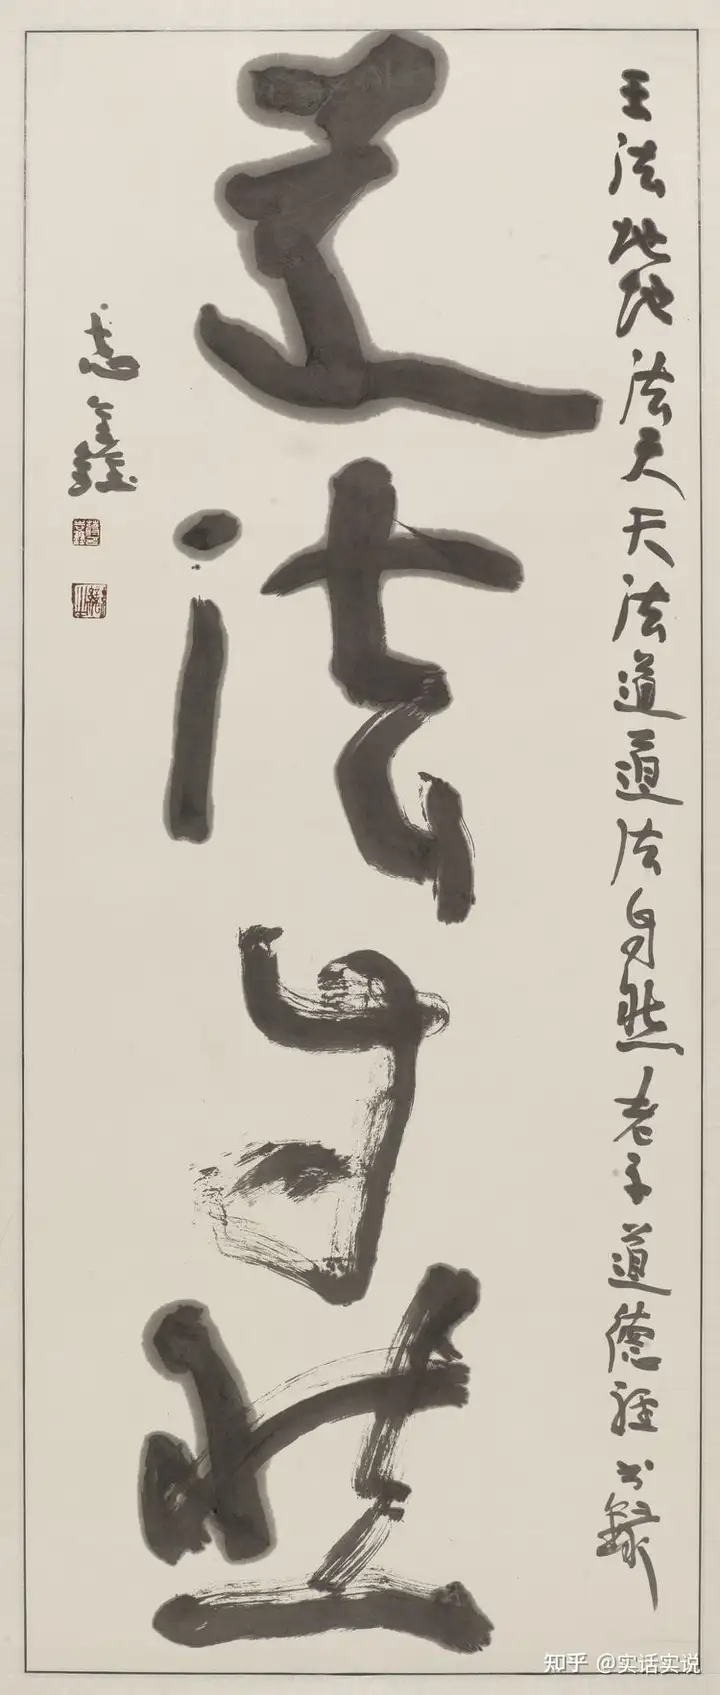 王法地地法天天法道道法自然老子道德经书录
道法自然
志鑫
知乎 @实话实说